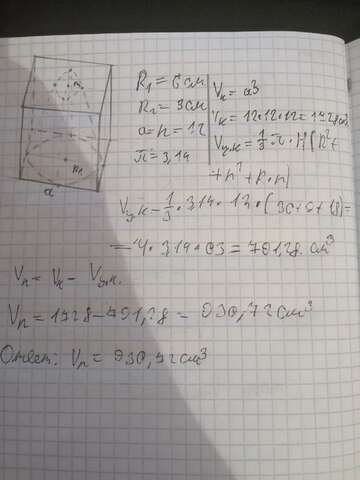 R₁ = 6 см
R₂ = 3 см
a = h = 12
π = 3,14
Vк = a³
Vк = 12·12·12 = 1728 см³
Vу.к = 1/3 π · H (R² +
+ r² + R·r)
R₁
a
Vу.к = 1/3 · 3,14 · 12 · (36 + 9 + 18) =
= 4 · 3,14 · 63 = 791,28 см³
Vп = Vк − Vу.к.
Vп = 1728 − 791,28 = 936,72 см³
Ответ: Vп = 936,72 см³